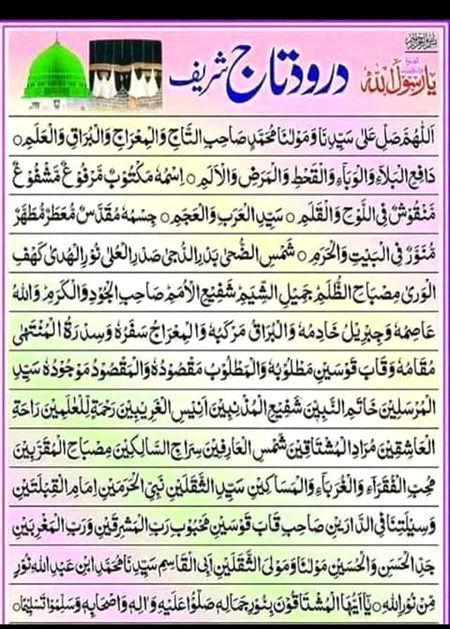 درود تاج شریف
یَارَسُوْلَ اللّٰه
اَللّٰهُمَّ صَلِّ عَلٰی سَیِّدِنَا وَمَوْلٰنَا مُحَمَّدٍ صَاحِبِ التَّاجِ وَالْمِعْرَاجِ وَالْبُرَاقِ وَالْعَلَمِ ○
دَافِعِ الْبَلَآءِ وَالْوَبَآءِ وَالْقَحْطِ وَالْمَرَضِ وَالْاَلَمِ ○ اِسْمُهٗ مَکْتُوْبٌ مَّرْفُوْعٌ مَّشْفُوْعٌ
مَّنْقُوْشٌ فِی اللَّوْحِ وَالْقَلَمِ ○ سَیِّدِ الْعَرَبِ وَالْعَجَمِ ○ جِسْمُهٗ مُقَدَّسٌ مُّعَطَّرٌ مُّطَهَّرٌ
مُّنَوَّرٌ فِی الْبَیْتِ وَالْحَرَمِ ○ شَمْسِ الضُّحٰی بَدْرِ الدُّجٰی صَدْرِ الْعُلٰی نُوْرِ الْهُدٰی کَهْفِ
الْوَرٰی مِصْبَاحِ الظُّلَمِ جَمِیْلِ الشِّیَمِ شَفِیْعِ الْاُمَمِ صَاحِبِ الْجُوْدِ وَالْکَرَمِ وَاللّٰهُ
عَاصِمُهٗ وَجِبْرِیْلُ خَادِمُهٗ وَالْبُرَاقُ مَرْکَبُهٗ وَالْمِعْرَاجُ سَفَرُهٗ وَسِدْرَةُ الْمُنْتَهٰی
مَقَامُهٗ وَقَابَ قَوْسَیْنِ مَطْلُوْبُهٗ وَالْمَطْلُوْبُ مَقْصُوْدُهٗ وَالْمَقْصُوْدُ مَوْجُوْدُهٗ سَیِّدِ
الْمُرْسَلِیْنَ خَاتَمِ النَّبِیّٖنَ شَفِیْعِ الْمُذْنِبِیْنَ اَنِیْسِ الْغَرِیْبِیْنَ رَحْمَةٍ لِّلْعٰلَمِیْنَ رَاحَةِ
الْعَاشِقِیْنَ مُرَادِ الْمُشْتَاقِیْنَ شَمْسِ الْعَارِفِیْنَ سِرَاجِ السَّالِکِیْنَ مِصْبَاحِ الْمُقَرَّبِیْنَ
مُحِبِّ الْفُقَرَآءِ وَالْغُرَبَآءِ وَالْمَسَاکِیْنَ سَیِّدِ الثَّقَلَیْنِ نَبِیِّ الْحَرَمَیْنِ اِمَامِ الْقِبْلَتَیْنِ
وَسِیْلَتِنَا فِی الدَّارَیْنِ صَاحِبِ قَابَ قَوْسَیْنِ مَحْبُوْبِ رَبِّ الْمَشْرِقَیْنِ وَرَبِّ الْمَغْرِبَیْنِ
جَدِّ الْحَسَنِ وَالْحُسَیْنِ مَوْلٰنَا وَمَوْلَی الثَّقَلَیْنِ اَبِی الْقَاسِمِ سَیِّدِنَا مُحَمَّدِ ابْنِ عَبْدِ اللّٰهِ نُوْرٍ
مِّنْ نُّوْرِ اللّٰهِ ○ یٰٓاَیُّهَا الْمُشْتَاقُوْنَ بِنُوْرِ جَمَالِهٖ صَلُّوْا عَلَیْهِ وَاٰلِهٖ وَاَصْحَابِهٖ وَسَلِّمُوْا تَسْلِیْمًا ○